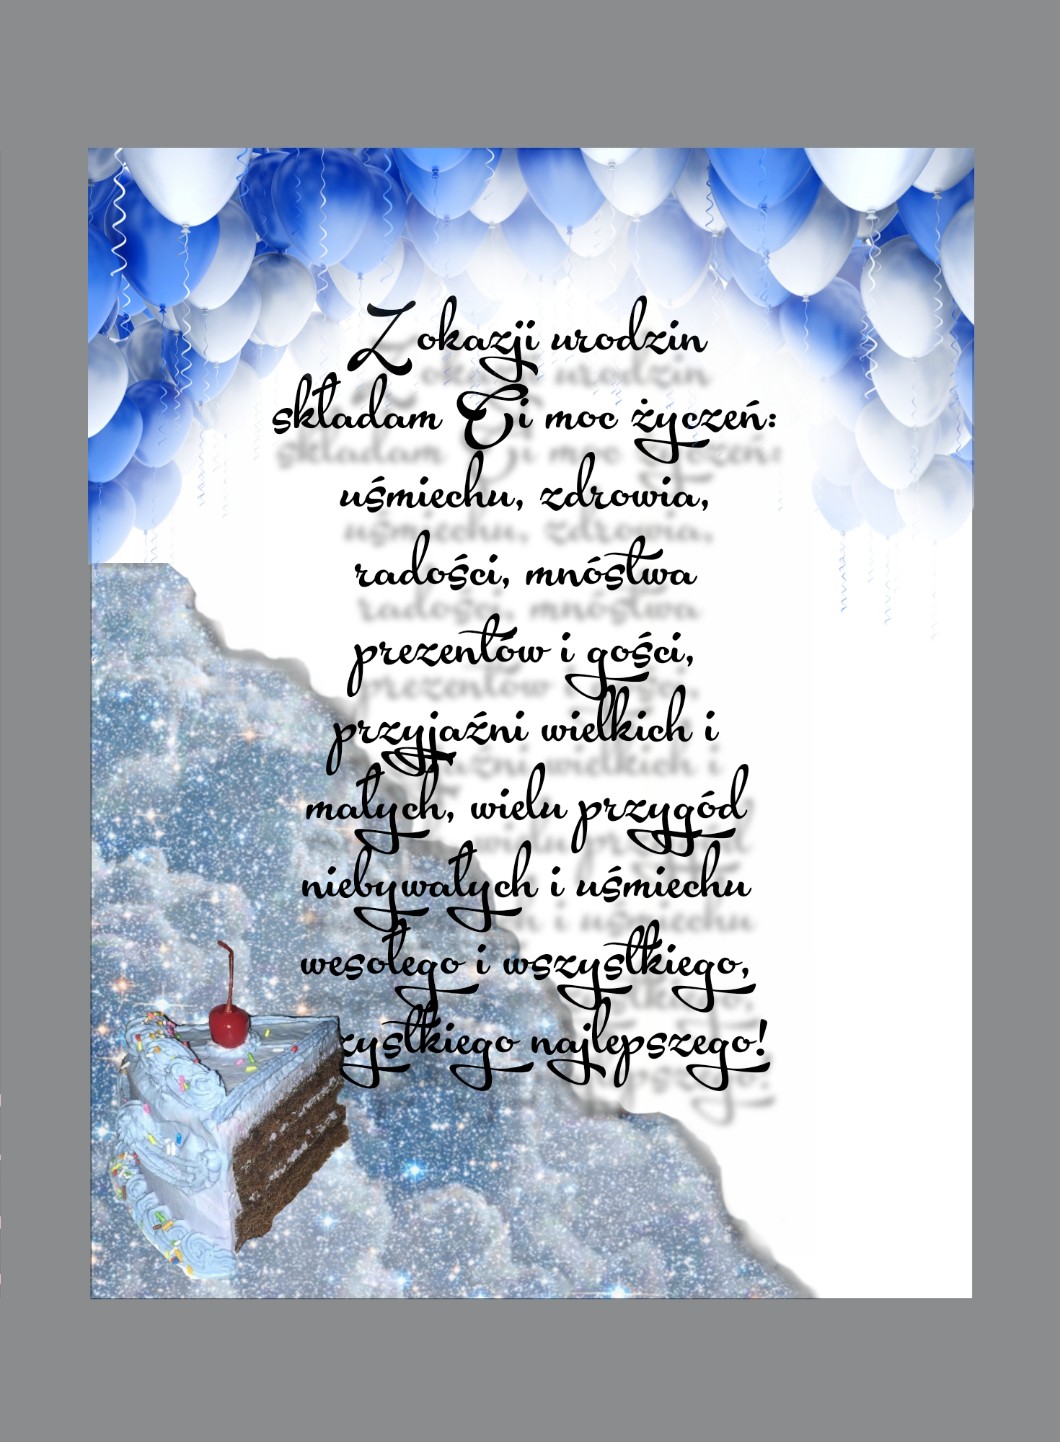 Z okazji urodzin
składam Ci moc życzeń:
uśmiechu, zdrowia,
radości, mnóstwa
prezentów i gości,
przyjaźni wielkich i
małych, wielu przygód
niebywałych i uśmiechu
wesołego i wszystkiego,
zystkiego najlepszego!